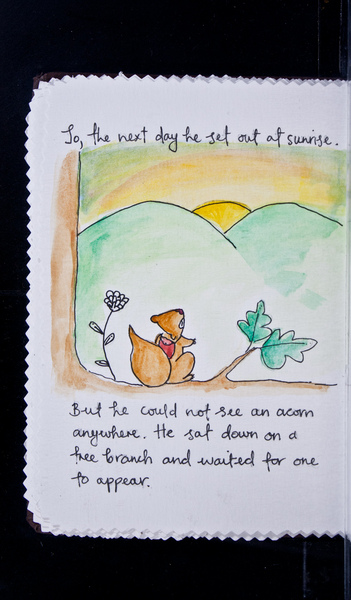 So, the next day he set out at sunrise.
But he could not see an acorn
anywhere. He sat down on a
tree branch and waited for one
to appear.